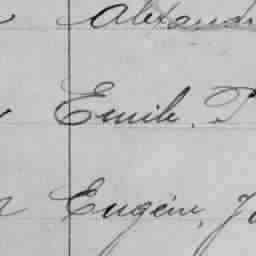 Alexand
Emile, P
Eugène, Jo